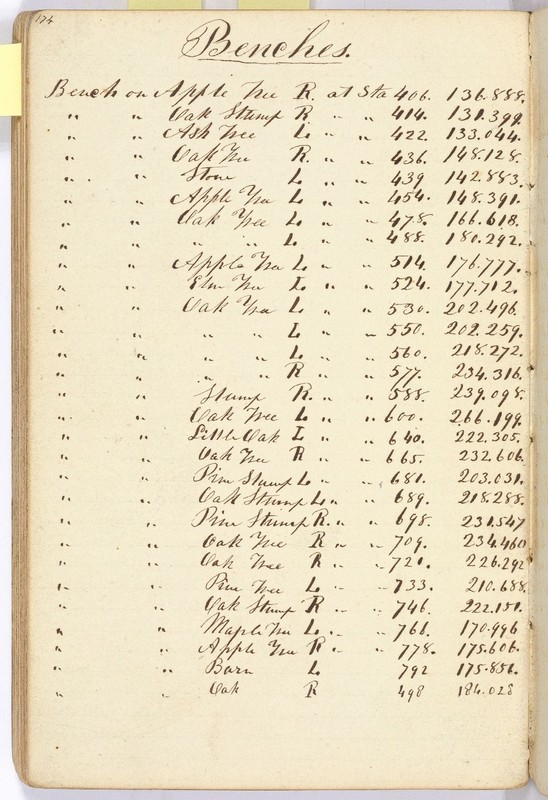 174
Benches.
Bench on Apple Tree R. at Sta 406. 136.888.
" " Oak Stump R " " 414. 131.399.
" " Ash Tree L " " 422. 133.044.
" " Oak Tree R. " " 436. 148.128.
" " Stone L " " 439 142.883.
" " Apple Tree L " " 454. 148.391.
" " Oak Tree L " " 478. 166.618.
" " " " L " " 488. 180.292.
" " Apple Tree L " " 514. 176.777.
" " Elm Tree L " " 524. 177.712.
" " Oak Tree L " " 530. 202.496.
" " " " L " " 550. 202.259.
" " " " L " " 560. 218.272.
" " " " R " " 577. 234.316.
" " Stump R. " " 588. 239.098.
" " Oak Tree L " " 600. 266.199.
" " Little Oak L " " 640. 222.305.
" " Oak Tree R " " 665. 232.606.
" " Pine Stump L " " 681. 203.031.
" " Oak Stump L " " 689. 218.288.
" " Pine Stump R. " " 698. 231.547
" " Oak Tree R " " 709. 234.460
" " Oak Tree R " " 721. 226.292
" " Pine Tree L " " 733. 210.688.
" " Oak Stump R " " 746. 222.151.
" " Maple Tree L " " 761. 170.996
" " Apple Tree R " 778. 175.606.
" " Barn L 792 175.856.
" " Oak R 498 184.028